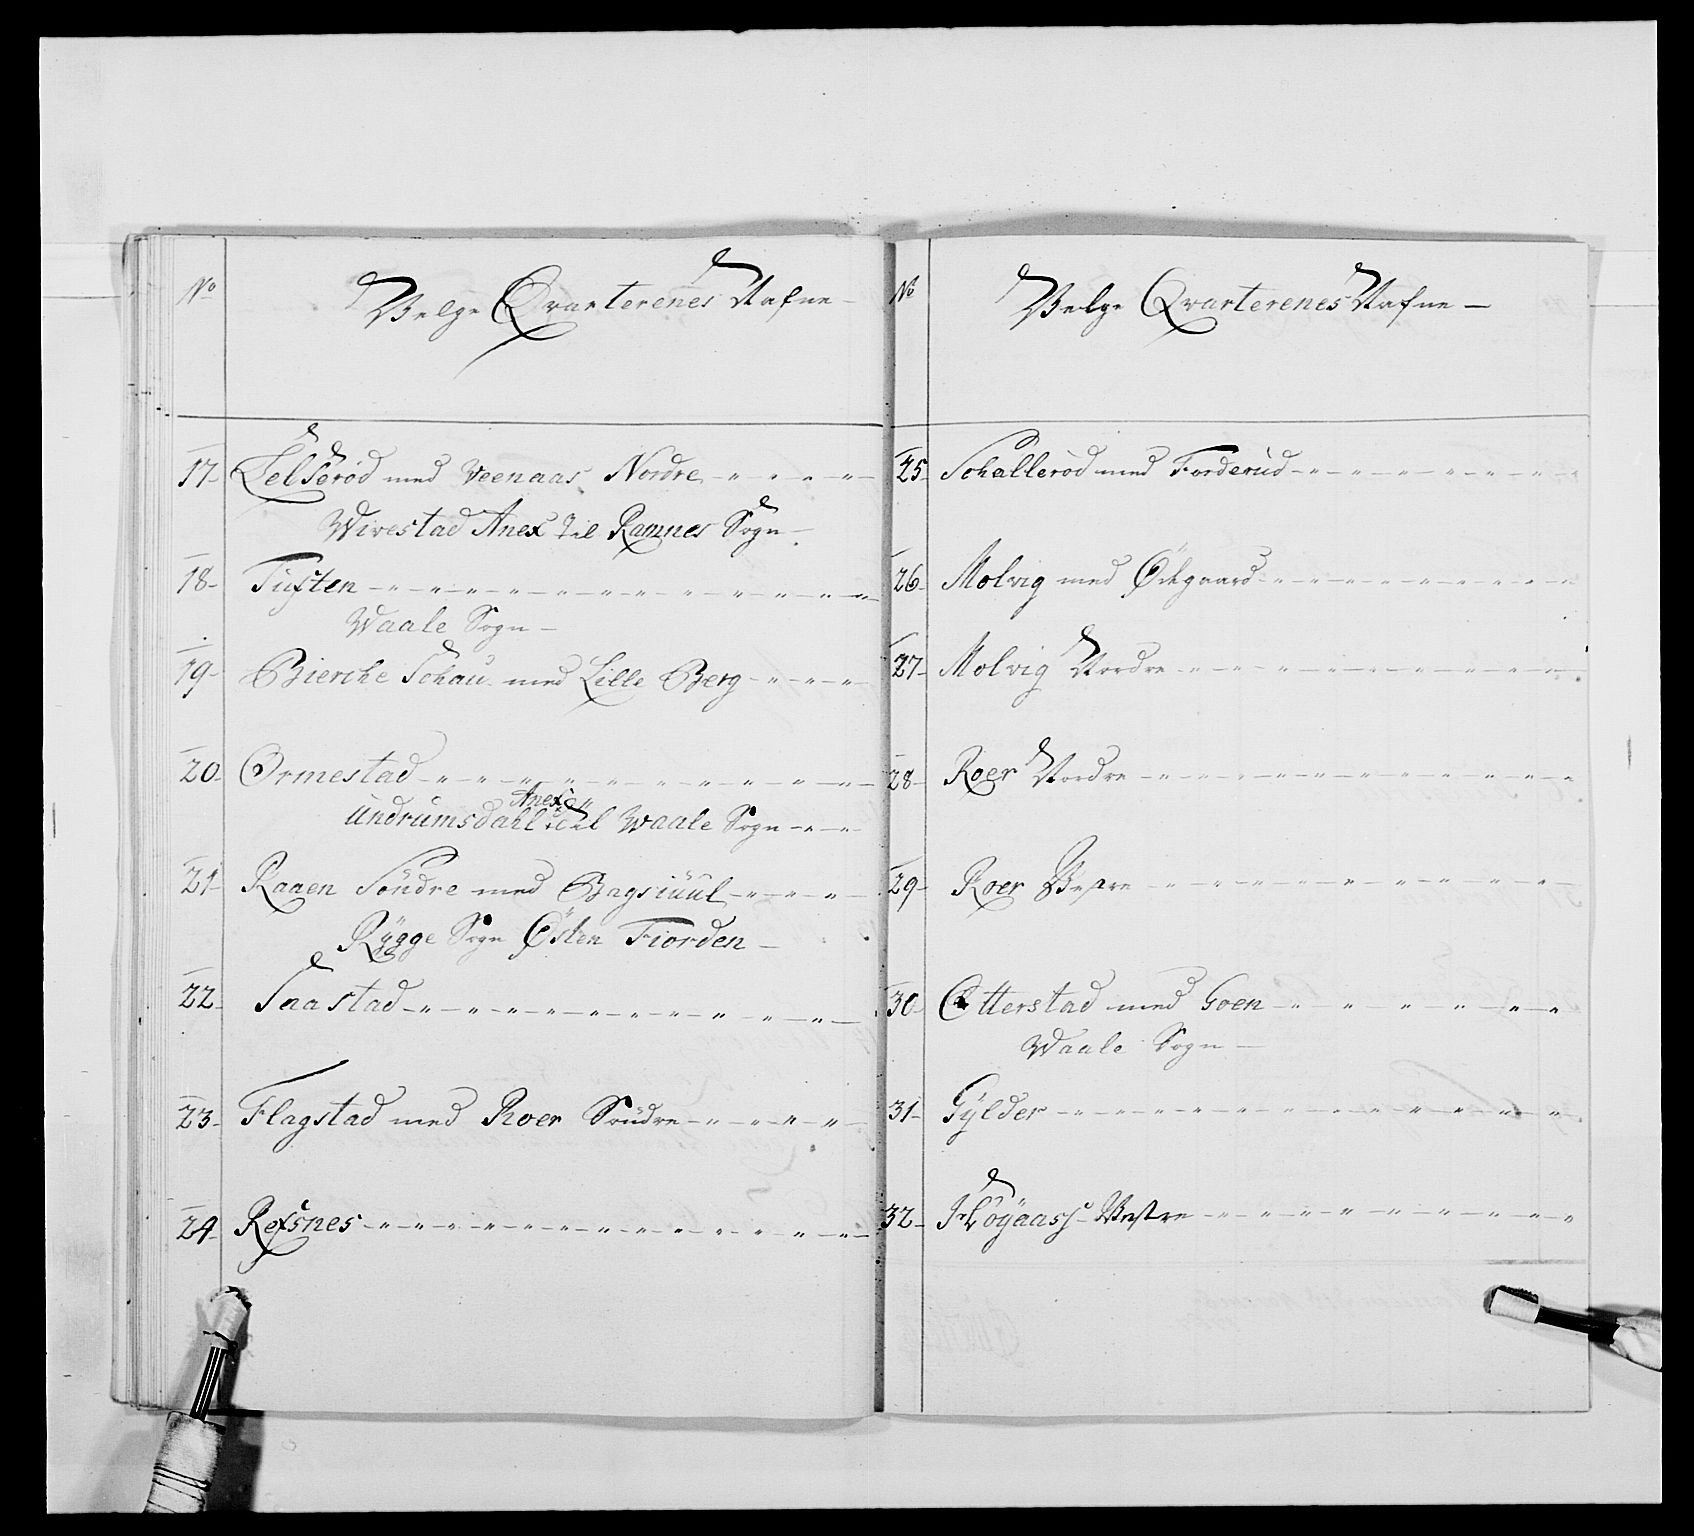 No
Velge Qvarterenes Nafne
17 Lelserød med Veenaas Nordre
Wivestad Anex til Ramnes Sogn
18 Tuften
Waale Sogn
19 Bierche Schau med Lille Berg
20 Ormestad
Anex
Undrumsdahl til Waale Sogn
21 Raaen Söndre med Bagsiuül
Rygge Sogn Østen Fiorden
22 Saastad
23 Flagstad med Roer Söndre
24 Refsnes
No
Velge Qvarterenes Nafne
25 Schallerød med Forderud
26 Molvig med Ödegaard
27 Molvig Nordre
28 Roer Nordre
29 Roer Vestre
30 Otterstad med Goen
Waale Sogn
31 Gylder
32 Höyaass Vestre